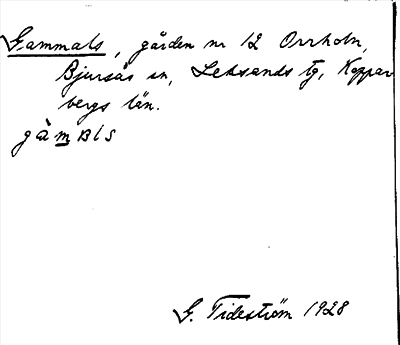 Gammals, gården nr 12 Orrholn,
Bjursås sn, Leksands tg, Koppar
bergs län.
gàmBls
G. Tideström 1928